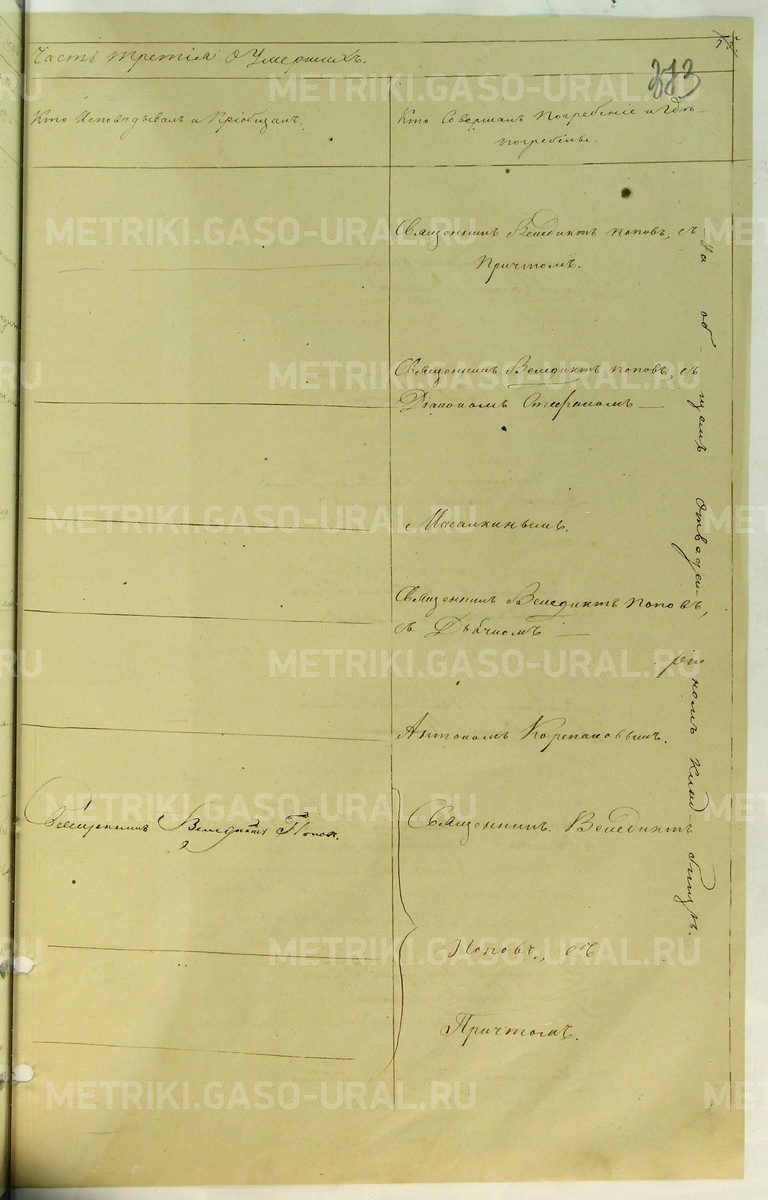 Часть третія о Умершихъ.
Кто Исповѣдывалъ и Пріобщалъ.
Кто Совершалъ Погребеніе и Гдѣ
погребены.
Священникъ Венедиктъ Поповъ, съ
Причтомъ.
Священникъ Венедиктъ Поповъ, съ
Діакономъ Стефаномъ
Масалкинымъ.
Священникъ Венедиктъ Поповъ,
съ Дьячкомъ
Антономъ Корепановымъ.
Священникъ Венедиктъ Поповъ.
Священникъ Венедиктъ
Поповъ, съ
Причтомъ.
На об-щемъ отведен-номъ клад-бищѣ.
METRIKI.GASO-URAL.RU